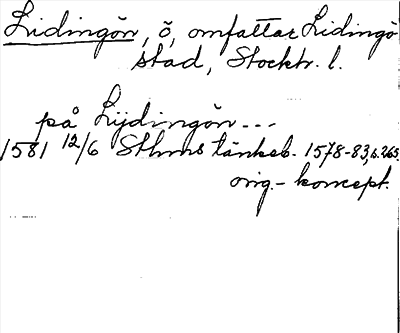 Lidingön, ö, omfattar Lidingö
stad, Stockh. l.
på Lijdingön ---
1581 12/6 Sthms tänkeb. 1578-83, s. 265.
orig.-koncept.